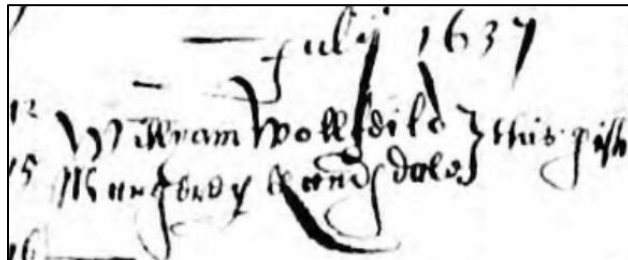 July 1637
12 William Wollfdild } this pish
15 Margerey Langdale
16